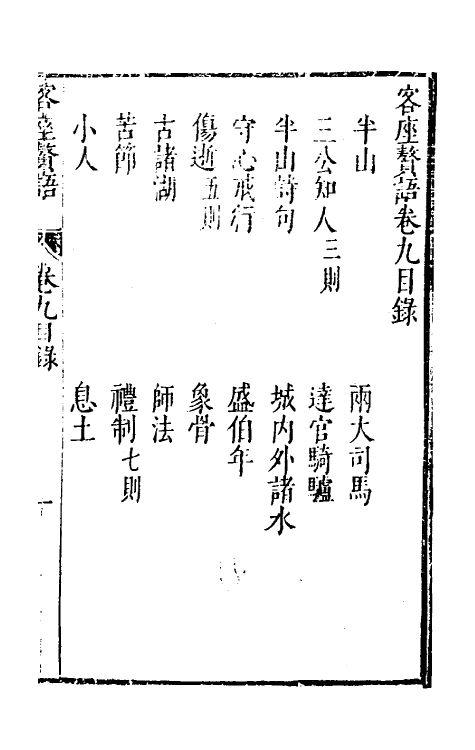 客座贅語卷九目錄
半山 兩大司馬
三公知人三則 達官騎驢
半山詩句 城内外諸水
守心戒行 盛伯年
傷逝五則 象骨
古諸湖 師法
苦節 禮制七則
小人 息土
客座贅語 卷九目錄 一